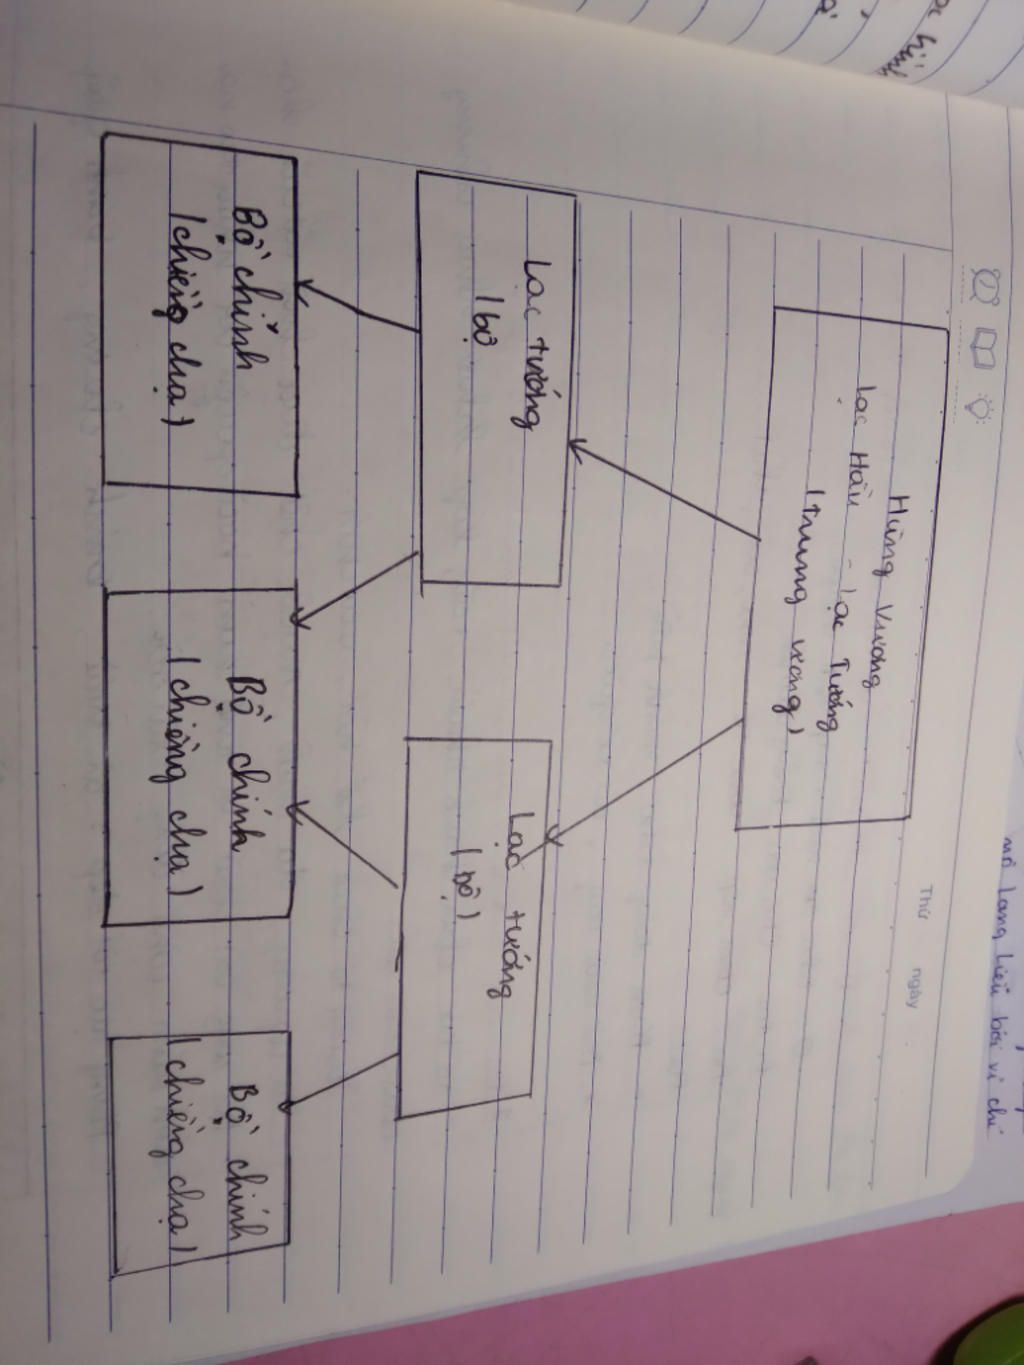 Thứ ngày
Hùng Vương
Lạc Hầu - Lạc Tướng
(Trung ương)
Lạc tướng
(bộ
Lạc tướng
(bộ)
Bồ chính
(chiềng chạ)
Bồ chính
(chiềng chạ)
Bồ chính
(chiềng chạ)
hình
Lang Liêu bởi vì chỉ